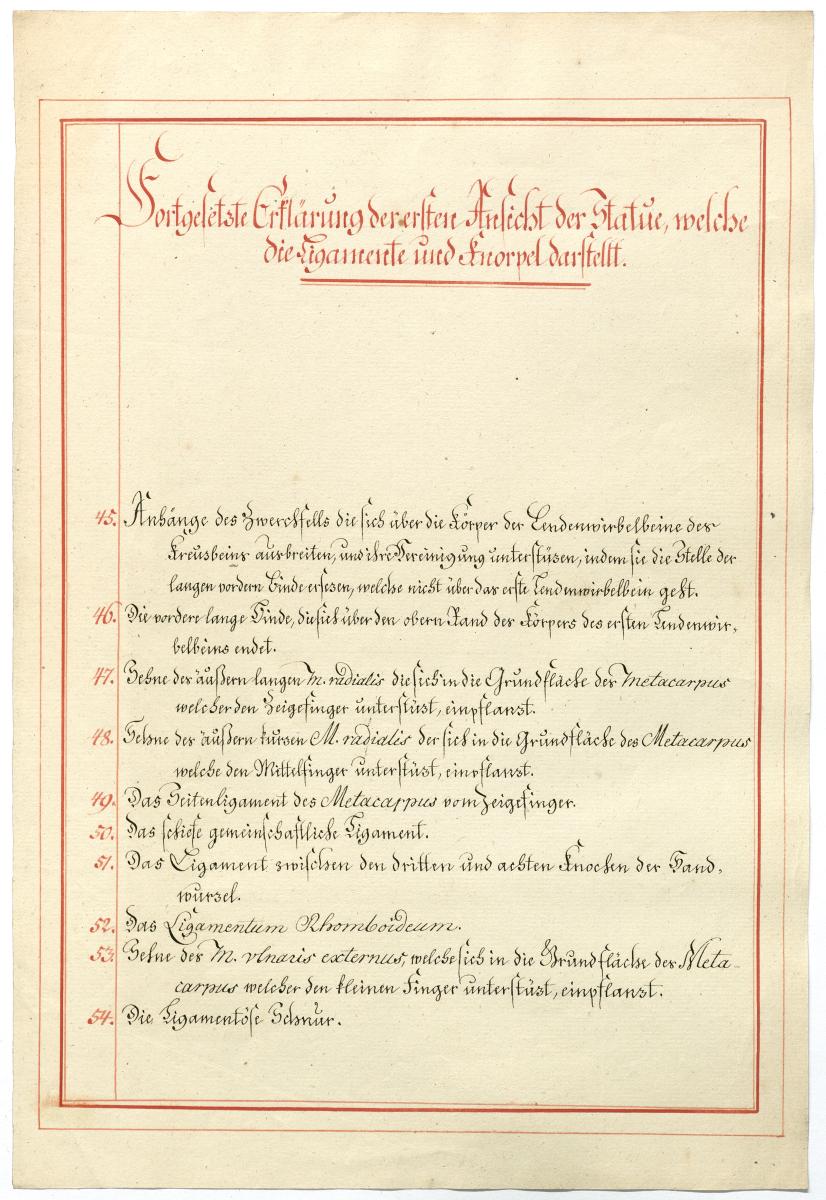 Fortgesetzte Erklärung der ersten Ansicht der Statue, welche
die Ligamente und Knorpel darstellt.
45. Anhänge des Zwerchfells die sich über die Körper der Lendenwirbelbeine des
Kreuzbeins ausbreiten, und ihre Vereinigung unterstüzen, indem sie die Stelle der
langen vordern Binde ersezen, welche nicht über das erste Lendenwirbelbein geht.
46. Die vordere lange Binde, die sich über den obern Rand des Körpers des ersten Lendenwir-
belbeins endet.
47. Sehne des äußern langen M. radialis die sich in die Grundfläche des Metacarpus
welcher den Zeigefinger unterstüzt, einpflanzt.
48. Sehne des äußern kurzen M. radialis der sich in die Grundfläche des Metacarpus
welche den Mittelfinger unterstüzt, einpflanzt.
49. Das Seitenligament des Metacarpus vom Zeigefinger.
50. Das schiefe gemeinschaftliche Ligament.
51. Das Ligament zwischen den dritten und achten Knochen der Hand-
wurzel.
52. Das Ligamentum Rhomboideum.
53. Sehne des M. vlnaris externus, welche sich in die Grundfläche des Meta-
carpus welcher den kleinen Finger unterstüzt, einpflanzt.
54. Die Ligamentöse Schnur.